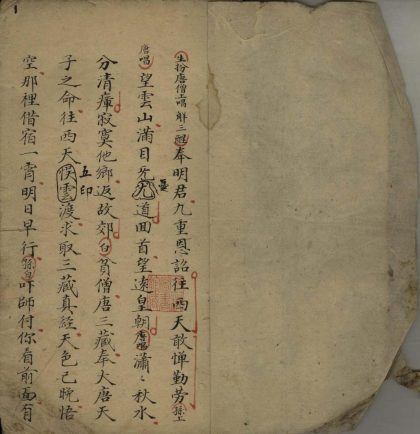 生扮唐僧上唱觧三酲奉明君九重恩詔往西天敢憚勤勞孫上
唐唱望雲山滿目道回首望遠皇朝唐唱瀟〻秋水
分清瘴寂寞他鄉返故郊白貧僧唐三藏奉大唐天
子之命往西天雲渡求取三藏真經天色已晚悟
五印
空那裡借宿一宵明日早行孫白師付你看前面有